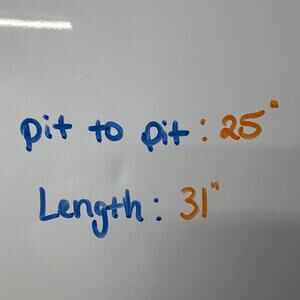 pit to pit : 25"
Length : 31"